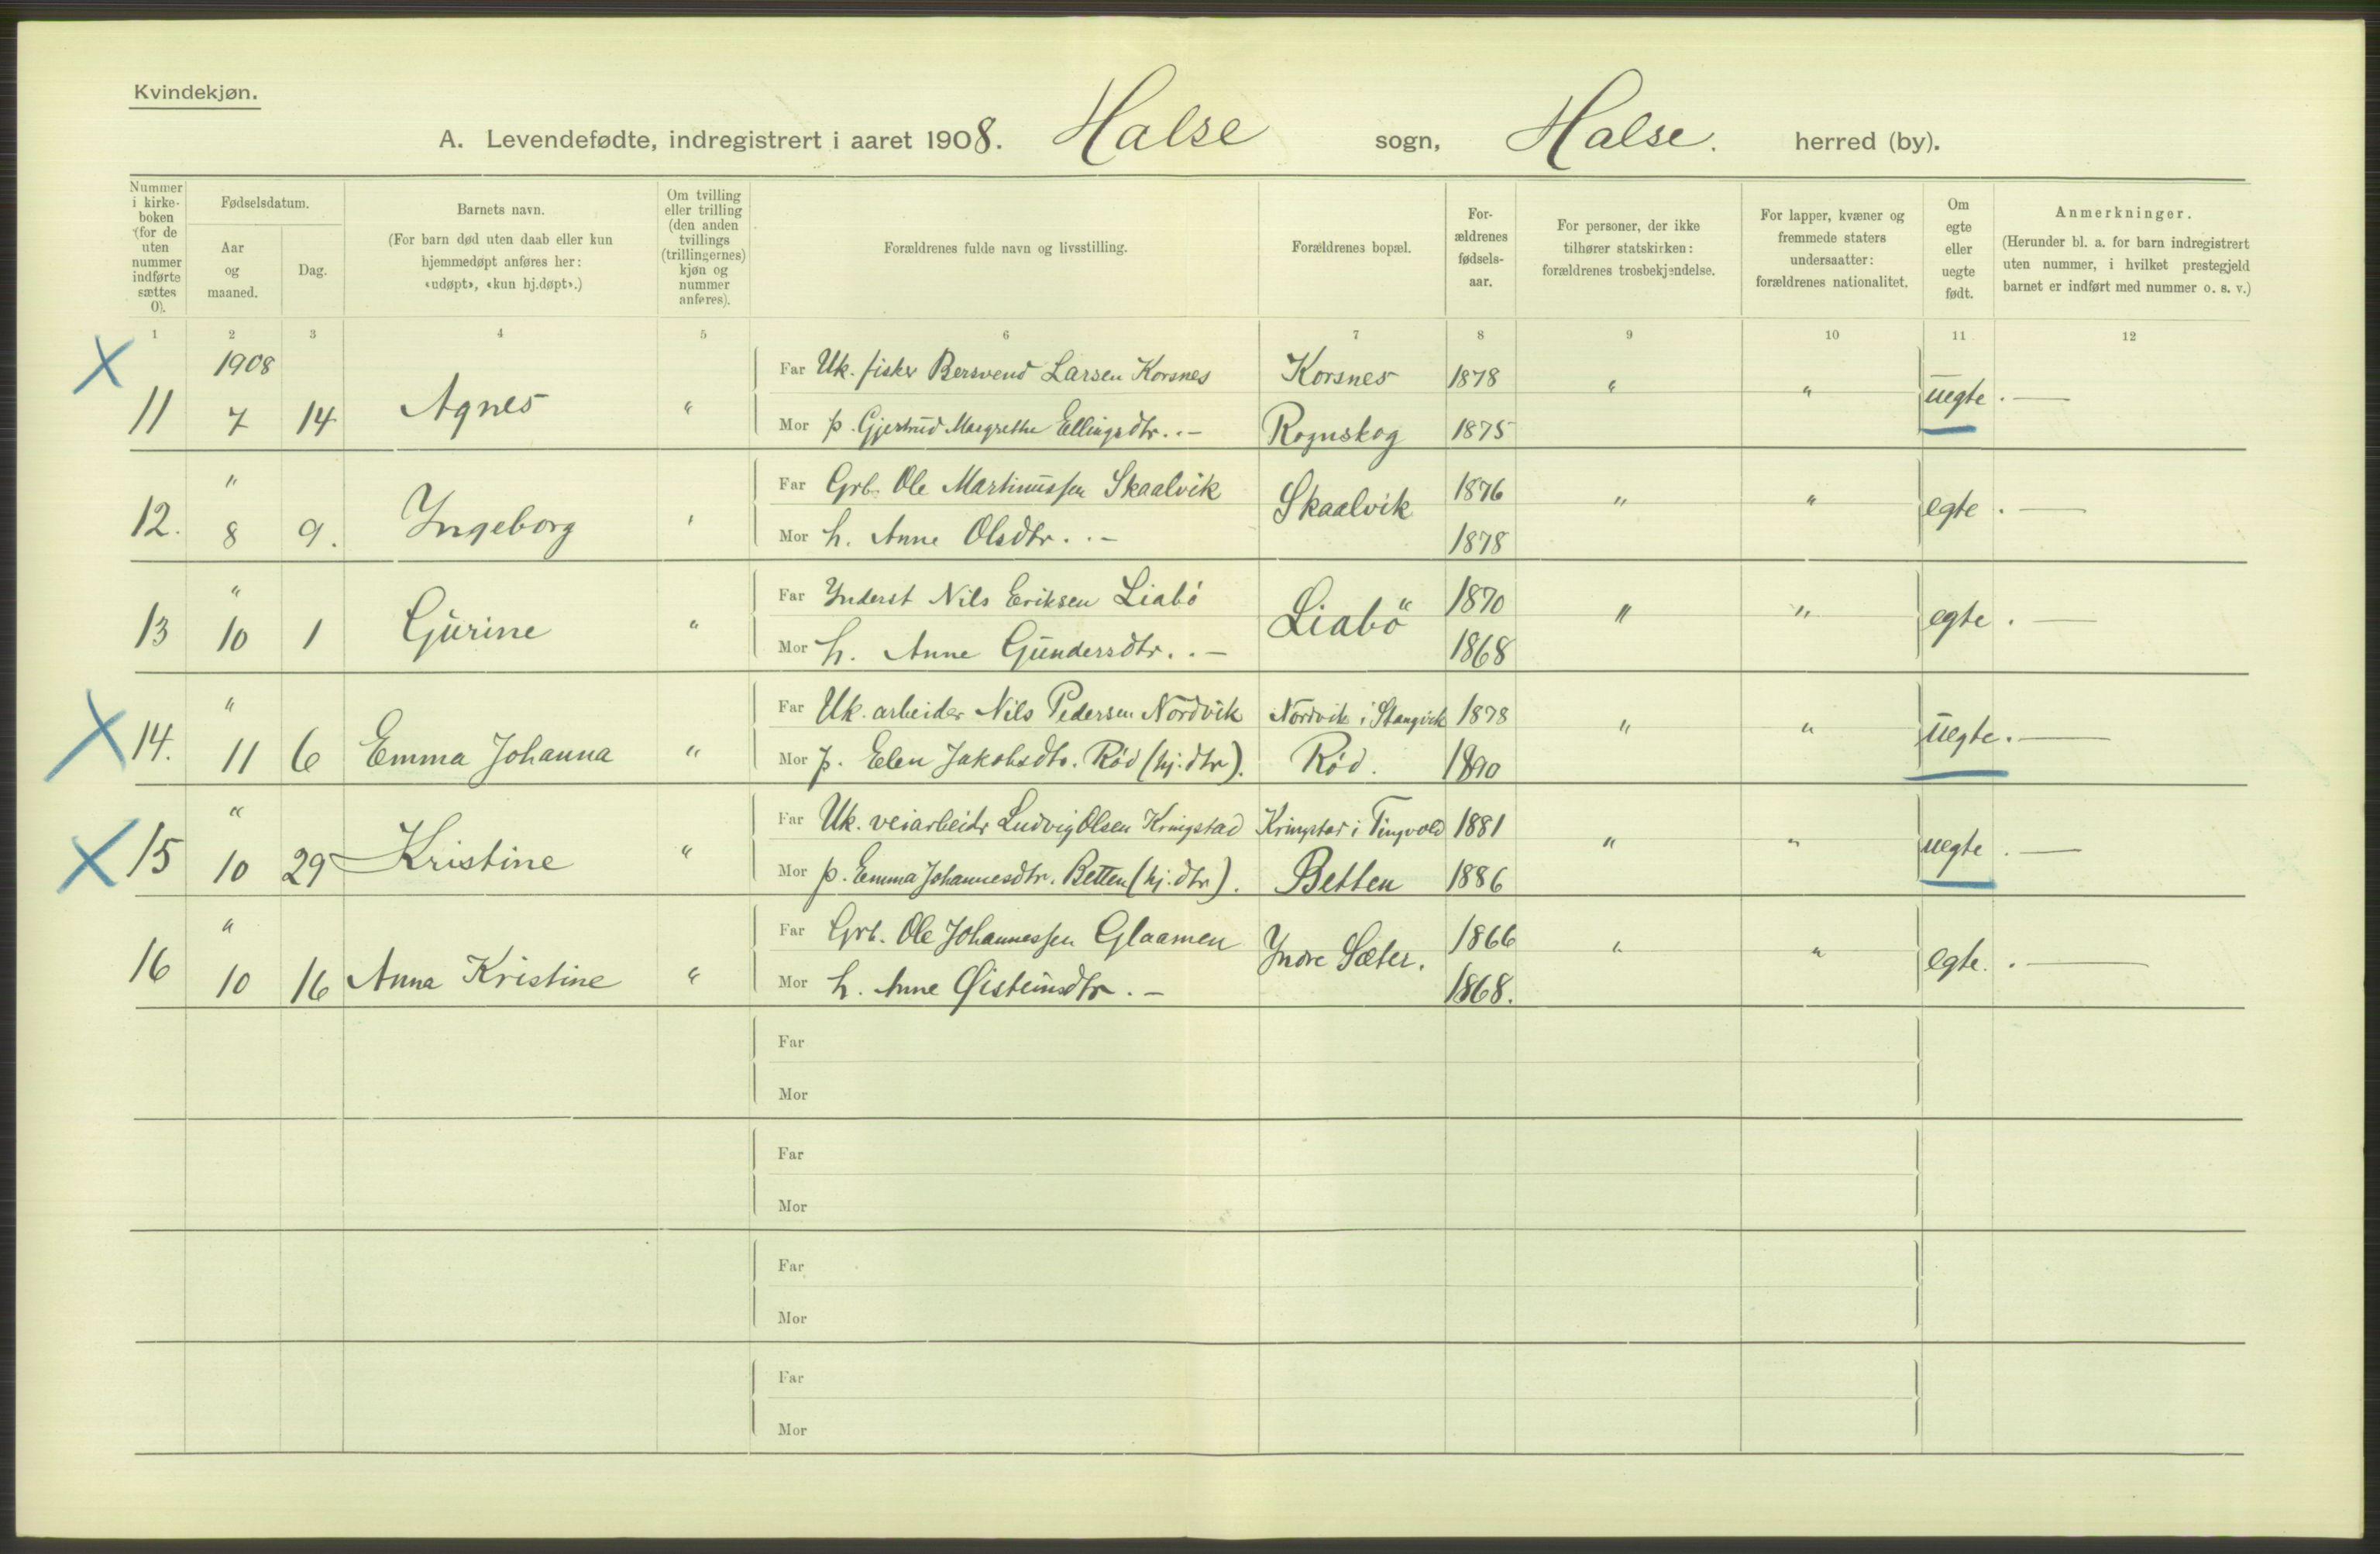 Kvindekjøn.
A. Levendefødte, indregistrert i aaret 1908. Halse sogn, Halse. herred (by).
Nummer i kirke-boken (for de uten nummer indførte sættes 0).
Fødselsdatum.
Aar og maaned.
Dag.
Barnets navn.
(For barn død uten daab eller kun hjemmedøpt anføres her: «udøpt», «kun hj.døpt».)
Om tvilling eller trilling (den anden tvillings (trillingernes) kjøn og nummer anføres).
Forældrenes fulde navn og livsstilling.
Forældrenes bopæl.
For-ældrenes fødsels-aar.
For personer, der ikke tilhører statskirken: forældrenes trosbekjendelse.
For lapper, kvæner og fremmede staters undersaatter: forældrenes nationalitet.
Om egte eller uegte født.
Anmerkninger.
(Herunder bl. a. for barn indregistrert uten nummer, i hvilket prestegjeld barnet er indført med nummer o. s. v.)
1 2 3 4 5 6 7 8 9 10 11 12
X 1908 Far Uk. fisker Bersvend Larsen Korsnes Korsnes 1878 " " uegte . —
11 7 14 Agnes " Mor p. Gjertrud Margrethe Ellingsdtr. . — Rognskog 1875
" Far Grb. Ole Martinussen Skaalvik Skaalvik 1876 " " egte . —
12. 8 9. Ingeborg " Mor h. Anne Olsdtr. . — 1878
" Far Inderst Nils Eriksen Liabö Liabö 1870 " " egte . —
13 10 1 Gurine " Mor h. Anne Gundersdtr. . — 1868
X " Far Uk. arbeider Nils Pedersen Nordvik Nordvik i Stangvik 1878 " " uegte . —
14. 11 6 Emma Johanna " Mor p. Elen Jakobsdtr. Rød (hj. dtr). Rød. 1890
X " Far Uk. veiarbeidr Ludvig Olsen Kringstad Kringstad i Tingvold 1881 " " uegte . —
15 10 29 Kristine " Mor p. Emma Johannesdtr. Betten (hj. dtr). Betten 1886
" Far Grb. Ole Johannessen Glaamen Indre Sæter. 1866 " " egte. . —
16 10 16 Anna Kristine " Mor h. Anne Øisteinsdtr . — 1868.
Far
Mor
Far
Mor
Far
Mor
Far
Mor